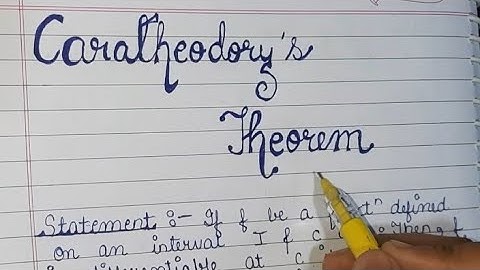 Caratheodory's
Theorem
Statement :- If f be a functⁿ defined
on an interval I & c Then f
differentiable at c